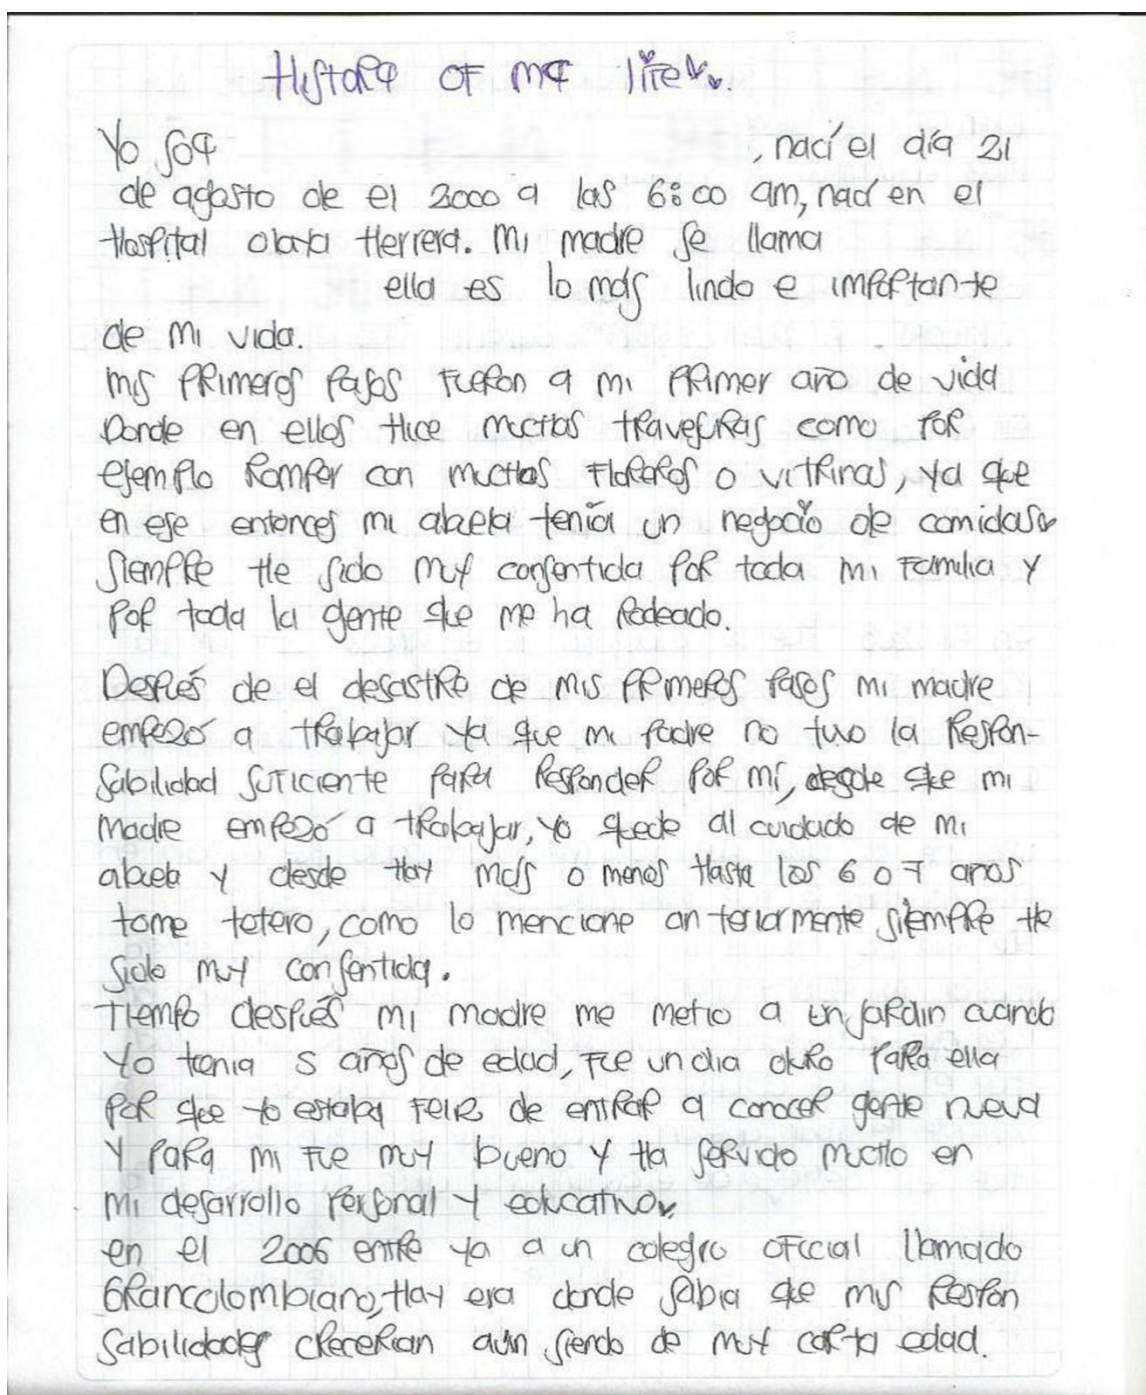 History of my life
Yo soy , nací el día 21
de agosto de el 2000 a las 6:00 am, nací en el
Hospital olaya Herrera. Mi madre se llama
ella es lo más lindo e importante
de mi vida.
mis primeros pasos fueron a mi primer año de vida
Donde en ellos hice muchas travesuras como por
ejemplo Romper con muchos floreros o vitrinas, ya que
en ese entonces mi abuela tenía un negocio de comidas
siempre he sido muy consentida por toda mi familia y
por toda la gente que me ha rodeado.
Después de el desastre de mis primeros pasos mi madre
empezó a trabajar ya que mi padre no tuvo la Respon-
sabilidad suficiente para Responder por mí, desde que mi
madre empezó a trabajar, yo quede al cuidado de mi
abuela y desde hay más o menos hasta los 6 o 7 años
tome tetero, como lo mencione anteriormente siempre he
sido muy consentida.
Tiempo después mi madre me metio a un jardin cuando
yo tenia 5 años de edad, fue un dia duro para ella
por que yo estaba feliz de entrar a conocer gente nueva
y para mi fue muy bueno y ha servido mucho en
mi desarrollo personal y educativo
en el 2006 entre ya a un colegio oficial llamado
Grancolombiano, Hay era donde sabia que mis Respon
sabilidades crecerian aún siendo de muy corta edad.